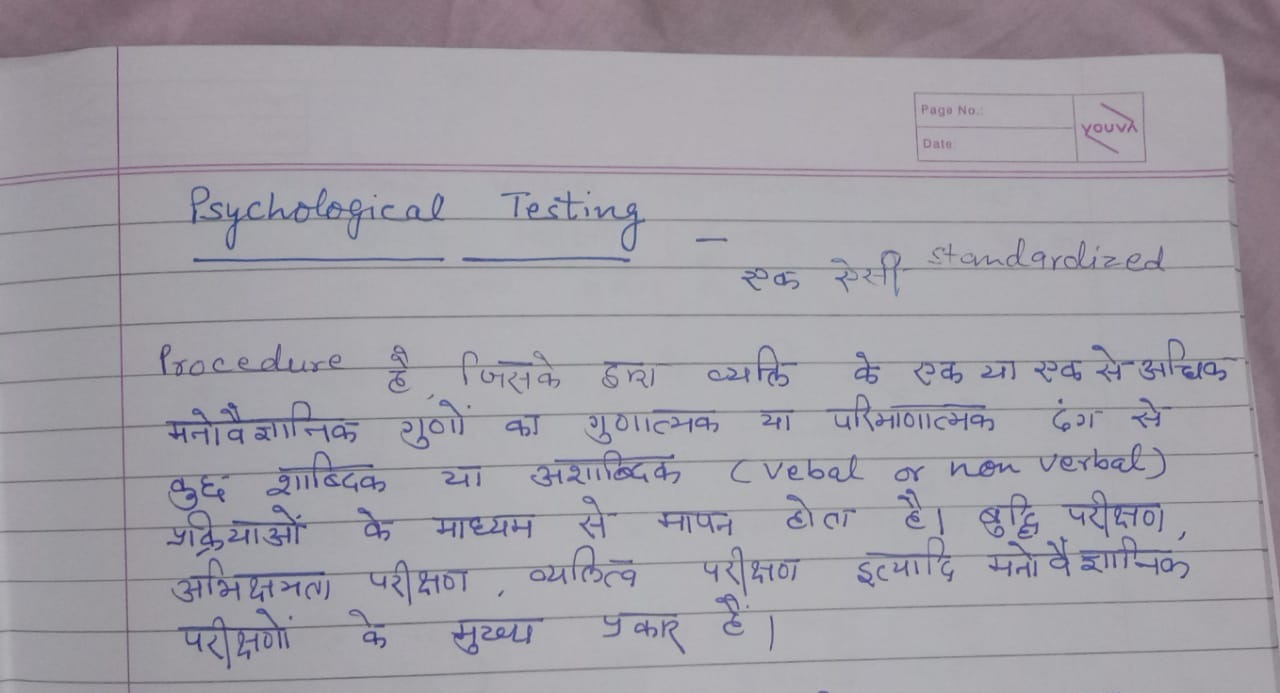 Page No.:
Date:
YOUVA
Psychological Testing –
एक ऐसी standardized
Procedure है, जिसके द्वारा व्यक्ति के एक या एक से अधिक
मनोवैज्ञानिक गुणों का गुणात्मक या परिमाणात्मक ढंग से
कुछ शाब्दिक या अशाब्दिक (Vebal or non verbal)
प्रक्रियाओं के माध्यम से मापन होता है। बुद्धि परीक्षण,
अभिक्षमता परीक्षण, व्यक्तित्व परीक्षण इत्यादि मनोवैज्ञानिक
परीक्षणों के मुख्य प्रकार हैं।